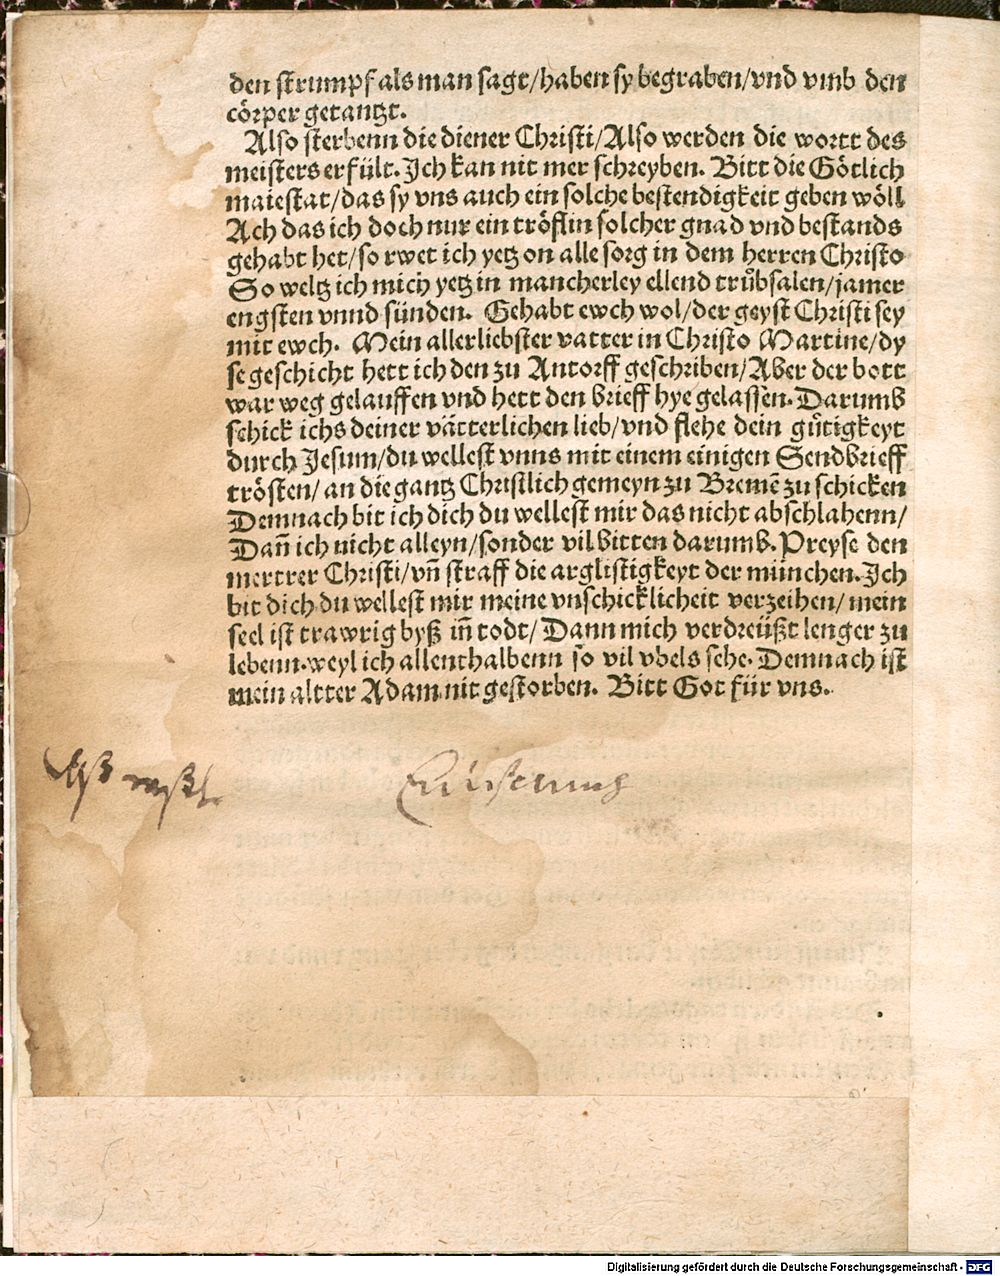 den strumpf als man sagt/haben sy begraben/vnd vmb den
cörper getantzt.
Also sterbenn die diener Christi/Also werden die wortt des
meisters erfült. Ich kan nit mer schreyben. Bitt die Götlich
maiestat/das sy vns auch ein solche bestendigkeit geben wöll
Ach das ich doch nur ein tröflin solcher gnad vnd bestands
gehabt het/so rwet ich yetz on alle sorg in dem herren Christo
So weltz ich mich yetz in mancherley ellend trůbsalen/jamer
engsten vnnd sünden. Gehabt ewch wol/der geyst Christi sey
mit ewch. Mein allerliebster vatter in Christo Martine/dy
se geschicht hett ich den zu Antorff geschriben/Aber der bott
war weg gelauffen vnd hett den brieff hye gelassen. Darumb
schick ichs deiner vätterlichen lieb/vnd flehe dein gůtigkeyt
durch Jesum/du wellest vnns mit einem einigen Sendbrieff
trösten/ an die gantz Christlich gemeyn zu Bremē zu schicken
Demnach bit ich dich du wellest mir das nicht abschlahenn/
Dañ ich nicht alleyn/sonder vil bitten darumb. Preyse den
mertrer Christi/vñ straff die arglistigkeyt der münchen. Ich
bit dich du wellest mir meine vnschicklicheit verzeihen/ mein
seel ist trawrig byß iñ todt/ Dann mich verdreüßt lenger zu
lebenn. weyl ich allenthalbenn so vil vbels sehe. Demnach ist
mein altter Adam nit gestorben. Bitt Got für vns.
Digitalisierung gefördert durch die Deutsche Forschungsgemeinschaft - DFG